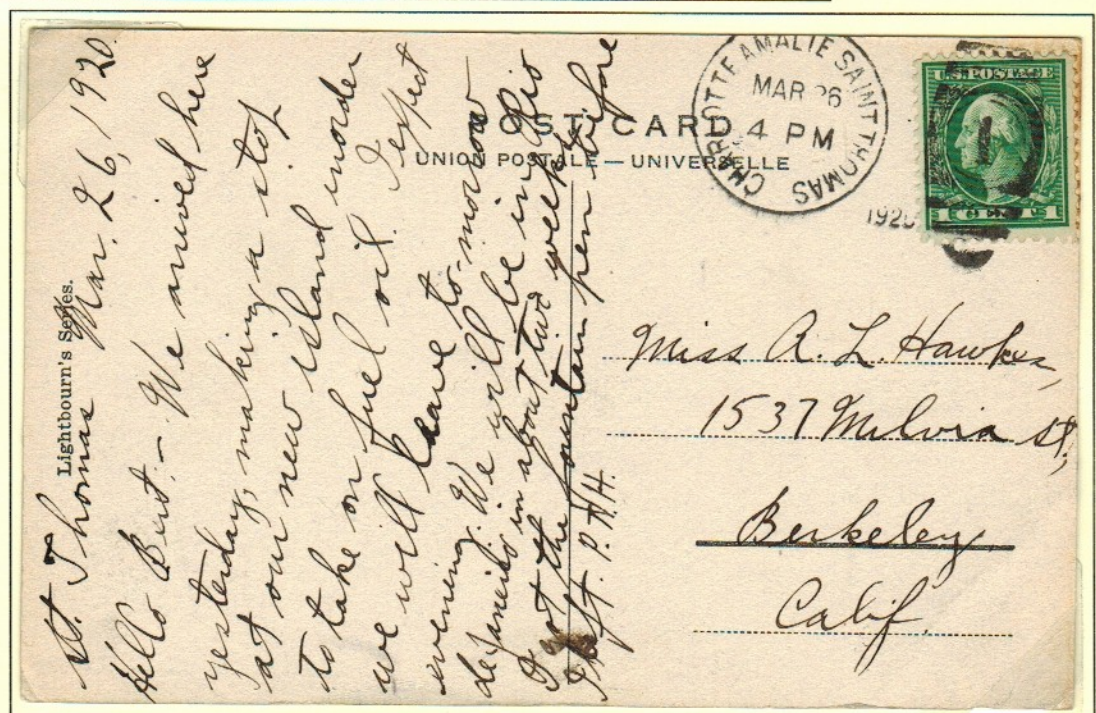 POST CARD
UNION POSTALE — UNIVERSELLE
Lightbourn's Series.
CHARLOTTE AMALIE SAINT THOMAS
MAR 26
4 PM
1920
U.S. POSTAGE
1
1 CENT 1
St. Thomas Mar. 26, 1920.
Hello Bert. - We arrived here
yesterday, making a stop
at our new island inorder
to take on fuel oil. I expect
we will leave to-morrow
evening. We will be in Rio
de Janeiro in about two weeks.
I got the fountain pen before
I left. P.N.H.
Miss A. L. Hawkes,
1537 Milvia St.,
Berkeley,
Calif.